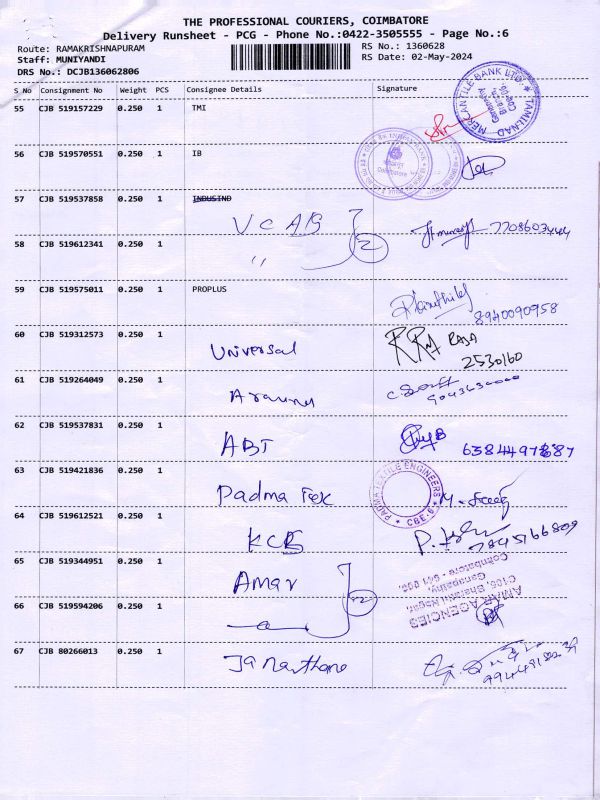 THE PROFESSIONAL COURIERS, COIMBATORE
Delivery Runsheet - PCG - Phone No.:0422-3505555 - Page No.:6
Route: RAMAKRISHNAPURAM
RS No.: 1360628
Staff: MUNIYANDI
RS Date: 02-May-2024
DRS No.: DCJB136062806
S No Consignment No Weight PCS Consignee Details Signature
55 CJB 519157229 0.250 1 TMI
TAMILNAD MERCANTILE BANK LTD.
Ganapathy
Branch
Cbe-06
56 CJB 519570551 0.250 1 IB
57 CJB 519537858 0.250 1 INDUSIND
VCAB 2 7708603444
58 CJB 519612341 0.250 1
"
59 CJB 519575011 0.250 1 PROPLUS
8940090958
60 CJB 519312573 0.250 1
Universal RAJA
2530160
61 CJB 519264049 0.250 1
62 CJB 519537831 0.250 1
ABT
63 CJB 519421836 0.250 1
Padma Tex
PADMA TEXTILE ENGINEERS
CBE-6
64 CJB 519612521 0.250 1
65 CJB 519344951 0.250 1
Amar 2
AMAR AGENCIES
C106, Bharathi Nagar,
Ganapathy,
Coimbatore - 641 006.
66 CJB 519594206 0.250 1
67 CJB 80266013 0.250 1
Janarthana